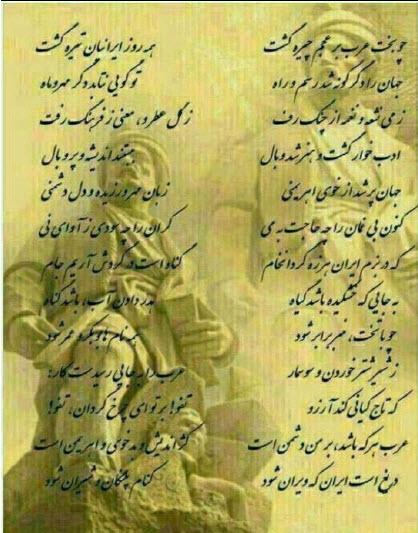 چو بخت عرب بر عجم چیره گشت همه روز ایرانیان تیره گشت
جهان را دگرگونه شد رسم و راه تو گویی نتابد دگر مهر و ماه
ز می نشئه و نغمه از چنگ رفت ز گل عطر و، معنی ز فرهنگ رفت
ادب خوار گشت و هنر شد وبال ببستند اندیشه و پر و بال
جهان پر شد از خوی اهریمنی زبان مهر ورزیده و دل دشمنی
کنون بی غمان را چه حاجت به می کران را چه سودی ز آوای نی
که در بزم ایران هرزه گرد انجام گناه است در گردش آریم جام
به جایی که خشکیده باشد گیاه هدر دادن آب، باشد گناه
چو با تخت، منبر برابر شود همه نام بوبکر و عمر شود
ز شیر شتر خوردن و سوسمار عرب را به جایی رسیدست کار:
که تاج کیانی کند آرزو تفو! بر تو ای چرخ گردان، تفو!
عرب هر که باشد، بر من دشمن است کژ اندیش و بدخوی و اهریمن است
دریغ است ایران که ویران شود کنام پلنگان و شیران شود